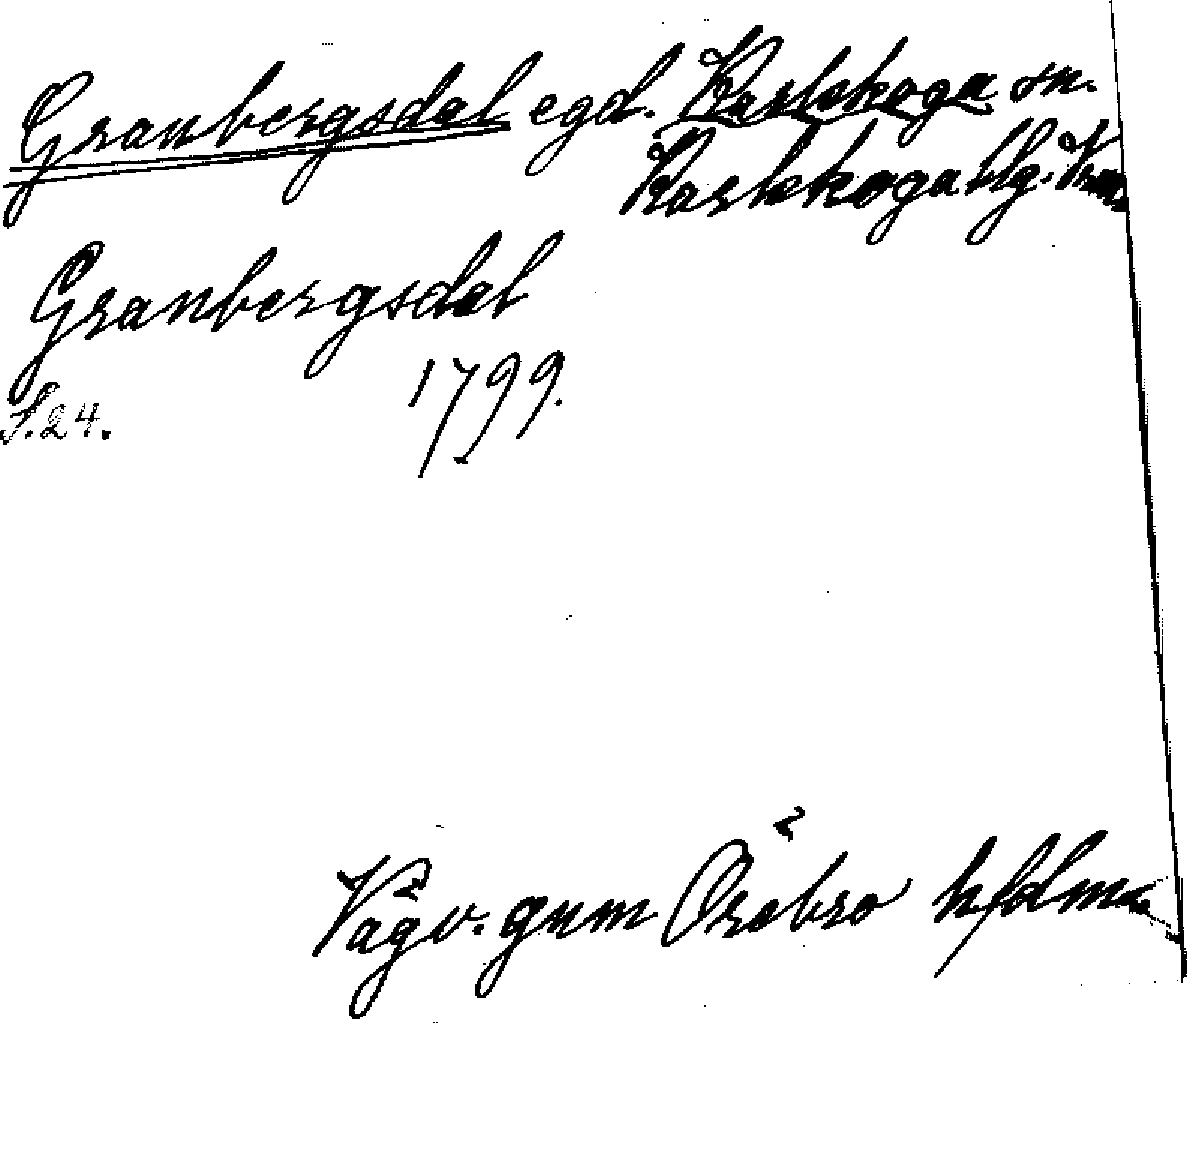 Granbergsdal egd. Karlskoga sn.
Karlskoga blg. Vrml.
Granbergsdal
1799.
S. 24.
Vägv. gnm Örebro hfdm.